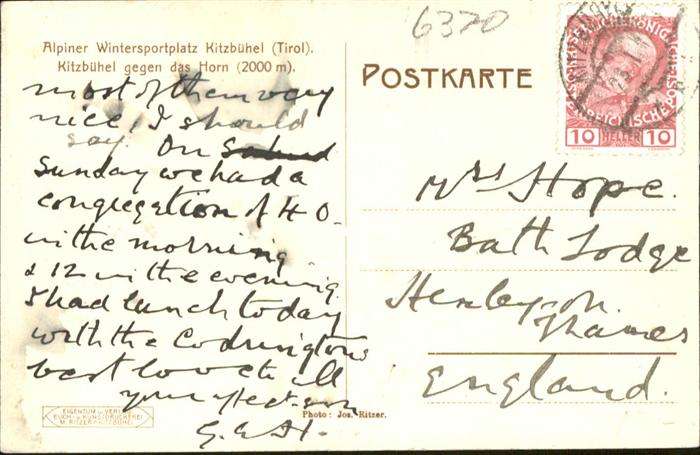 6370
Alpiner Wintersportplatz Kitzbühel (Tirol).
Kitzbühel gegen das Horn (2000 m).
most of them very
nice, I should
say. On
Sunday we had a
congregation of 40
in the morning
& 12 in the evening.
I had lunch today
with the Codringtons
best love to all
your affect. son
G.E.H.
EIGENTUM u. VERL
BUCH- u. KUNSTDRUCKEREI
M. RITZER KITZBÜHEL
Photo: Jos. Ritzer.
POSTKARTE
10 HELLER 10
Mrs Hope.
Bath Lodge
Henley-on.
Thames
England.